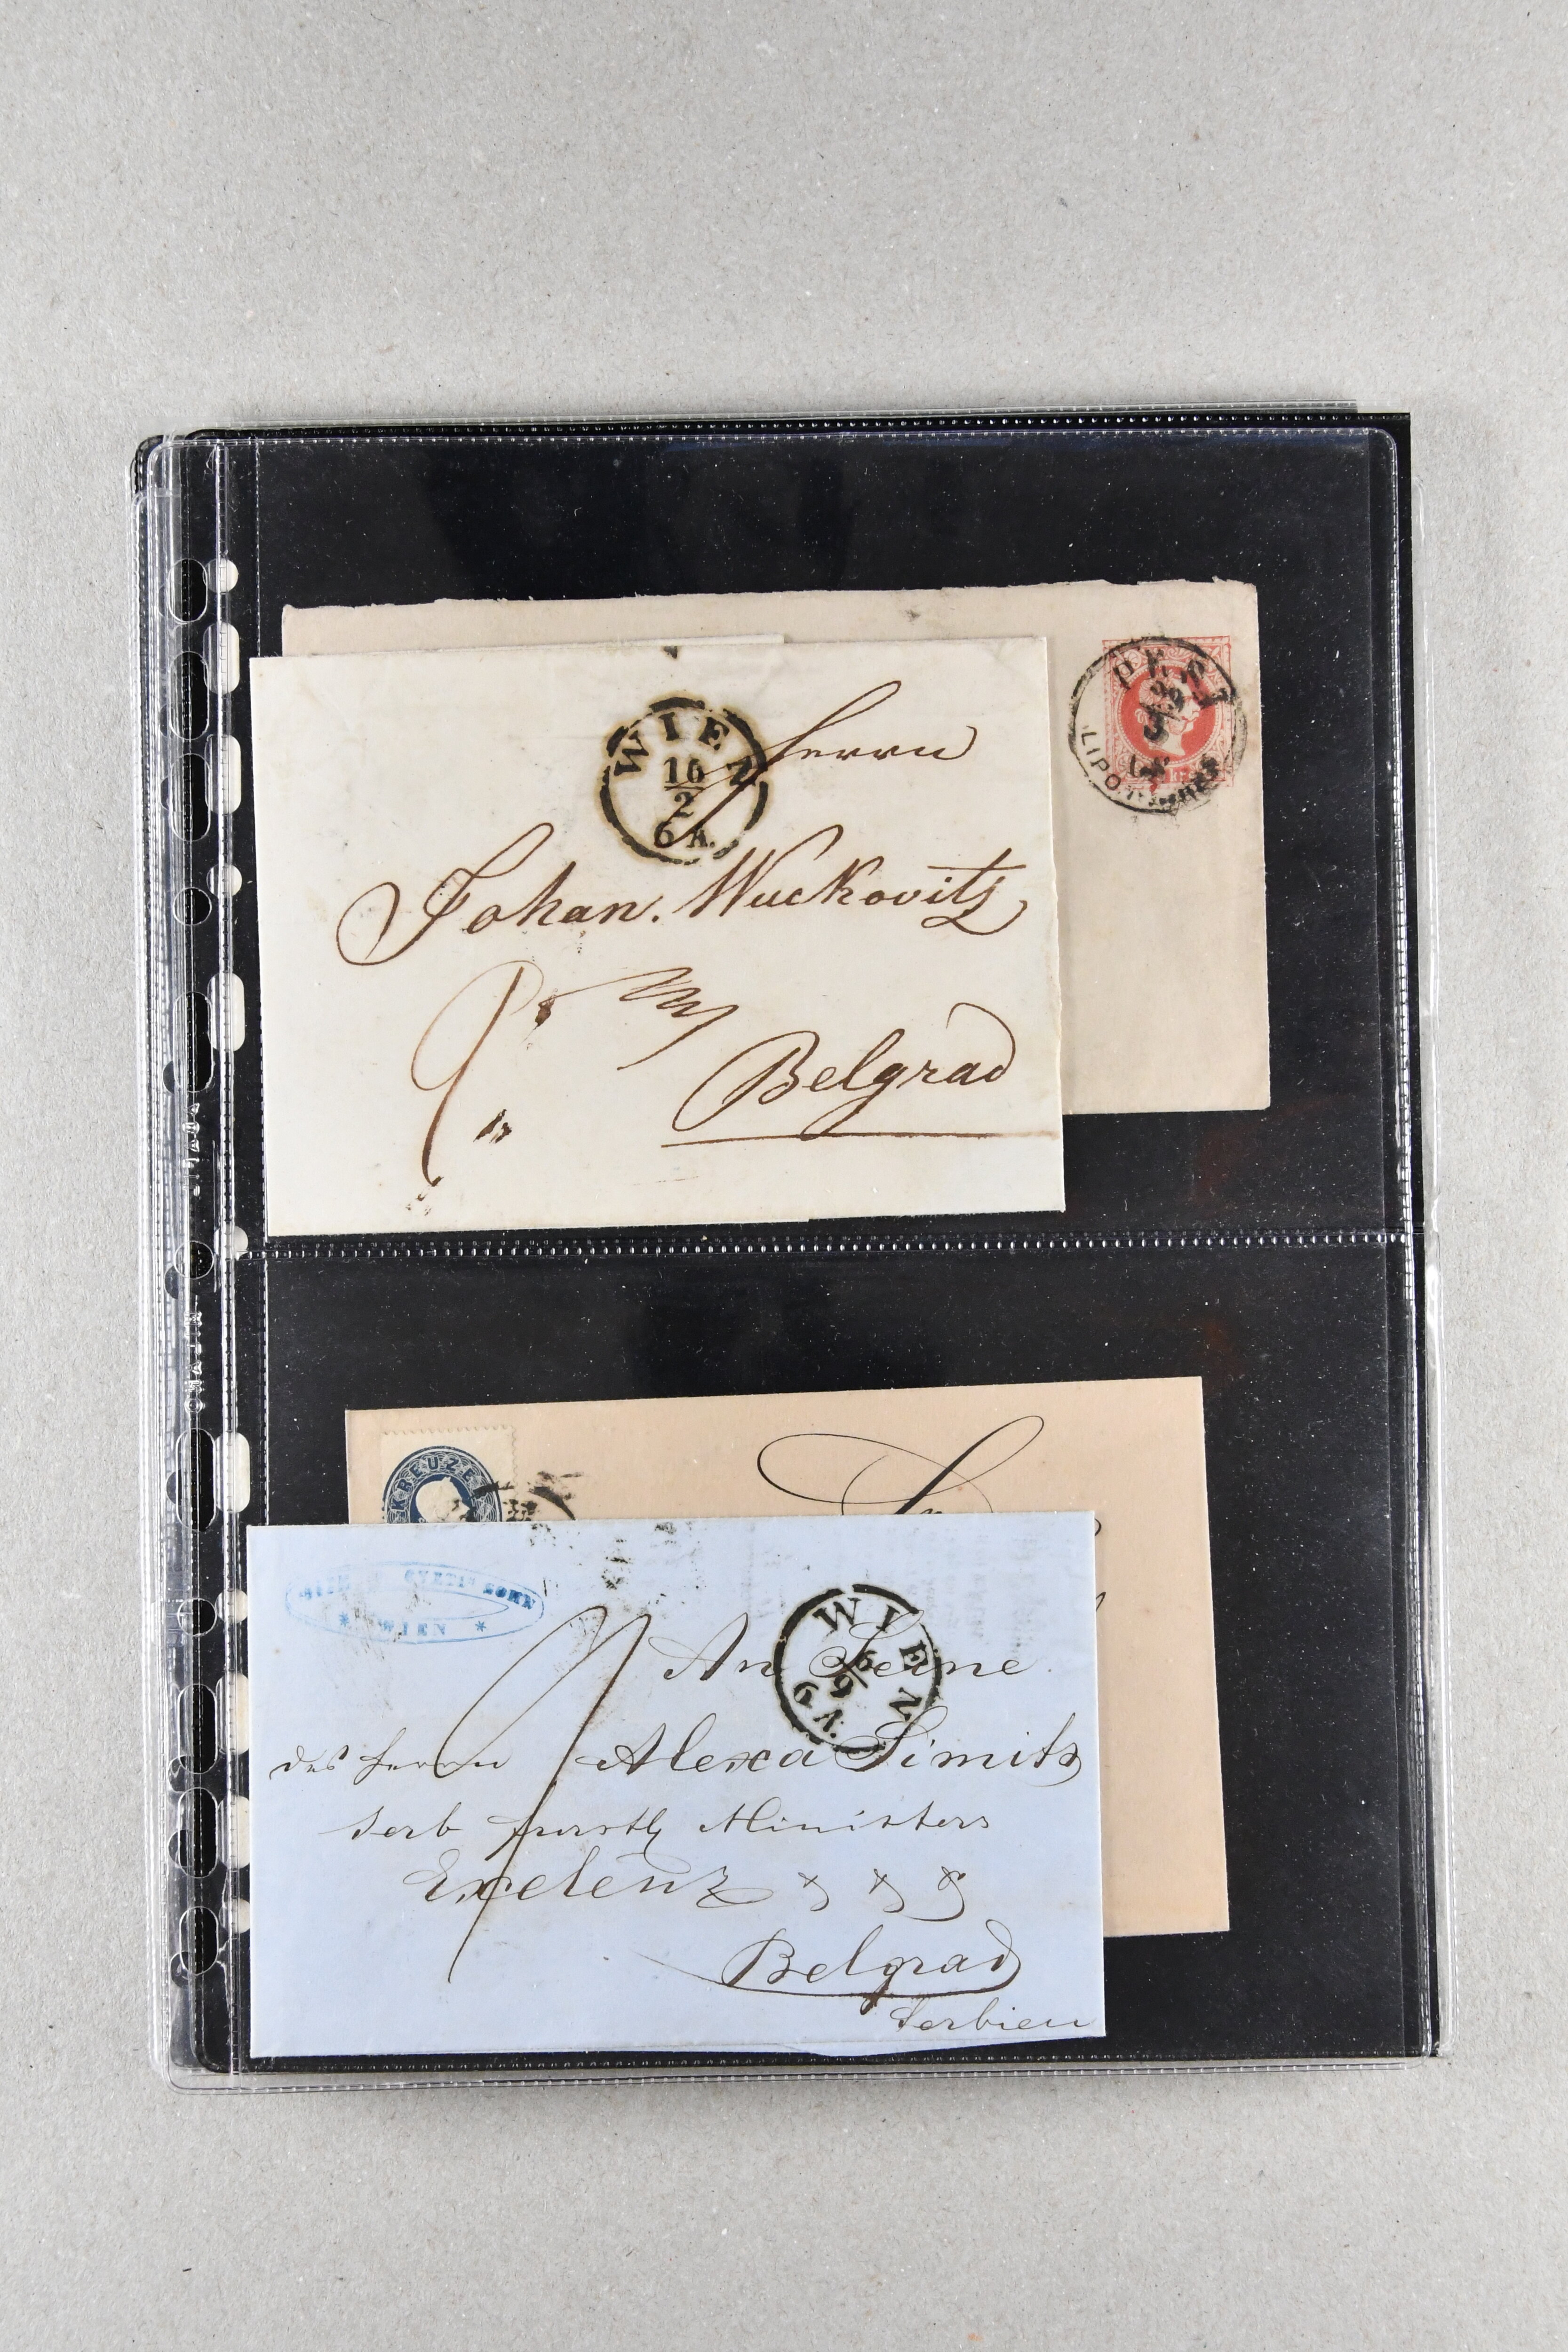 WIEN
16
2
6 A.
Herrn
Johan. Wuckovitz
Belgrad
PEST
KREUZE
SOHN
* WIEN *
WIEN
9
6 A.
An Seine
des Herrn Alexa Simits
serb fürstl Ministers
Excelenz
Belgrad
Serbien